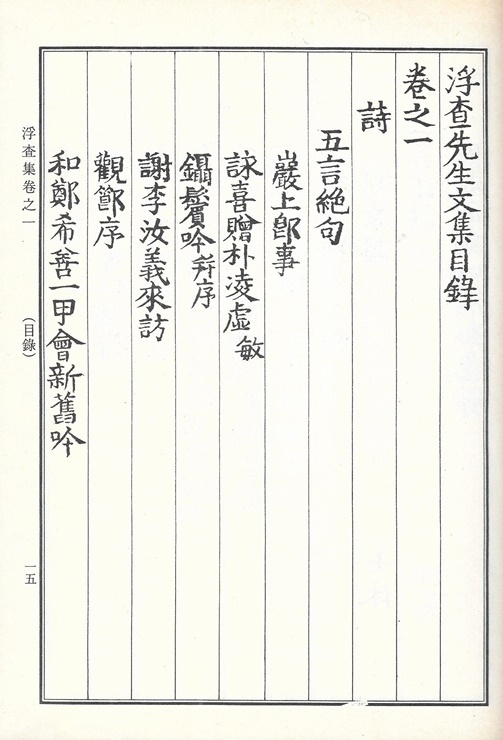 浮査先生文集目錄
卷之一
詩
五言絶句
巖上卽事
詠喜贈朴凌虛敏
鑷鬢吟幷序
謝李汝義來訪
觀䉛序
和鄭希善一甲會新舊吟
浮査集卷之一 (目錄) 一五